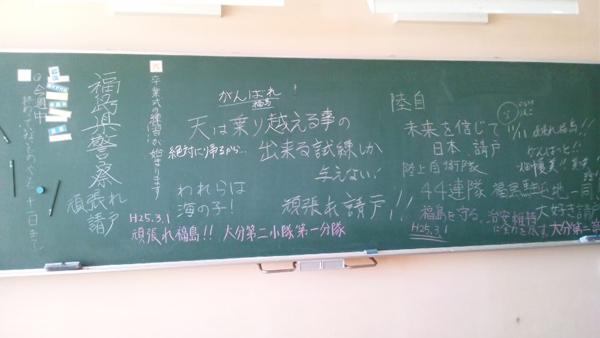 卒業式の練習が始まります
福島県警察
頑張れ
請戸
がんばれ
福島
天は乗り越える事の
出来る試練しか
与えない!
絶対に帰るから…
われらは
海の子!
頑張れ請戸!!
H25.3.1
頑張れ福島!! 大分第二小隊第一分隊
陸自
未来を信じて
日本 請戸
陸上自衛隊
44連隊 福島駐屯地一同!
福島を守る。治安維持
に全力を尽す。
H25.3.1
がんばっと!!
大好き請戸
大分第一